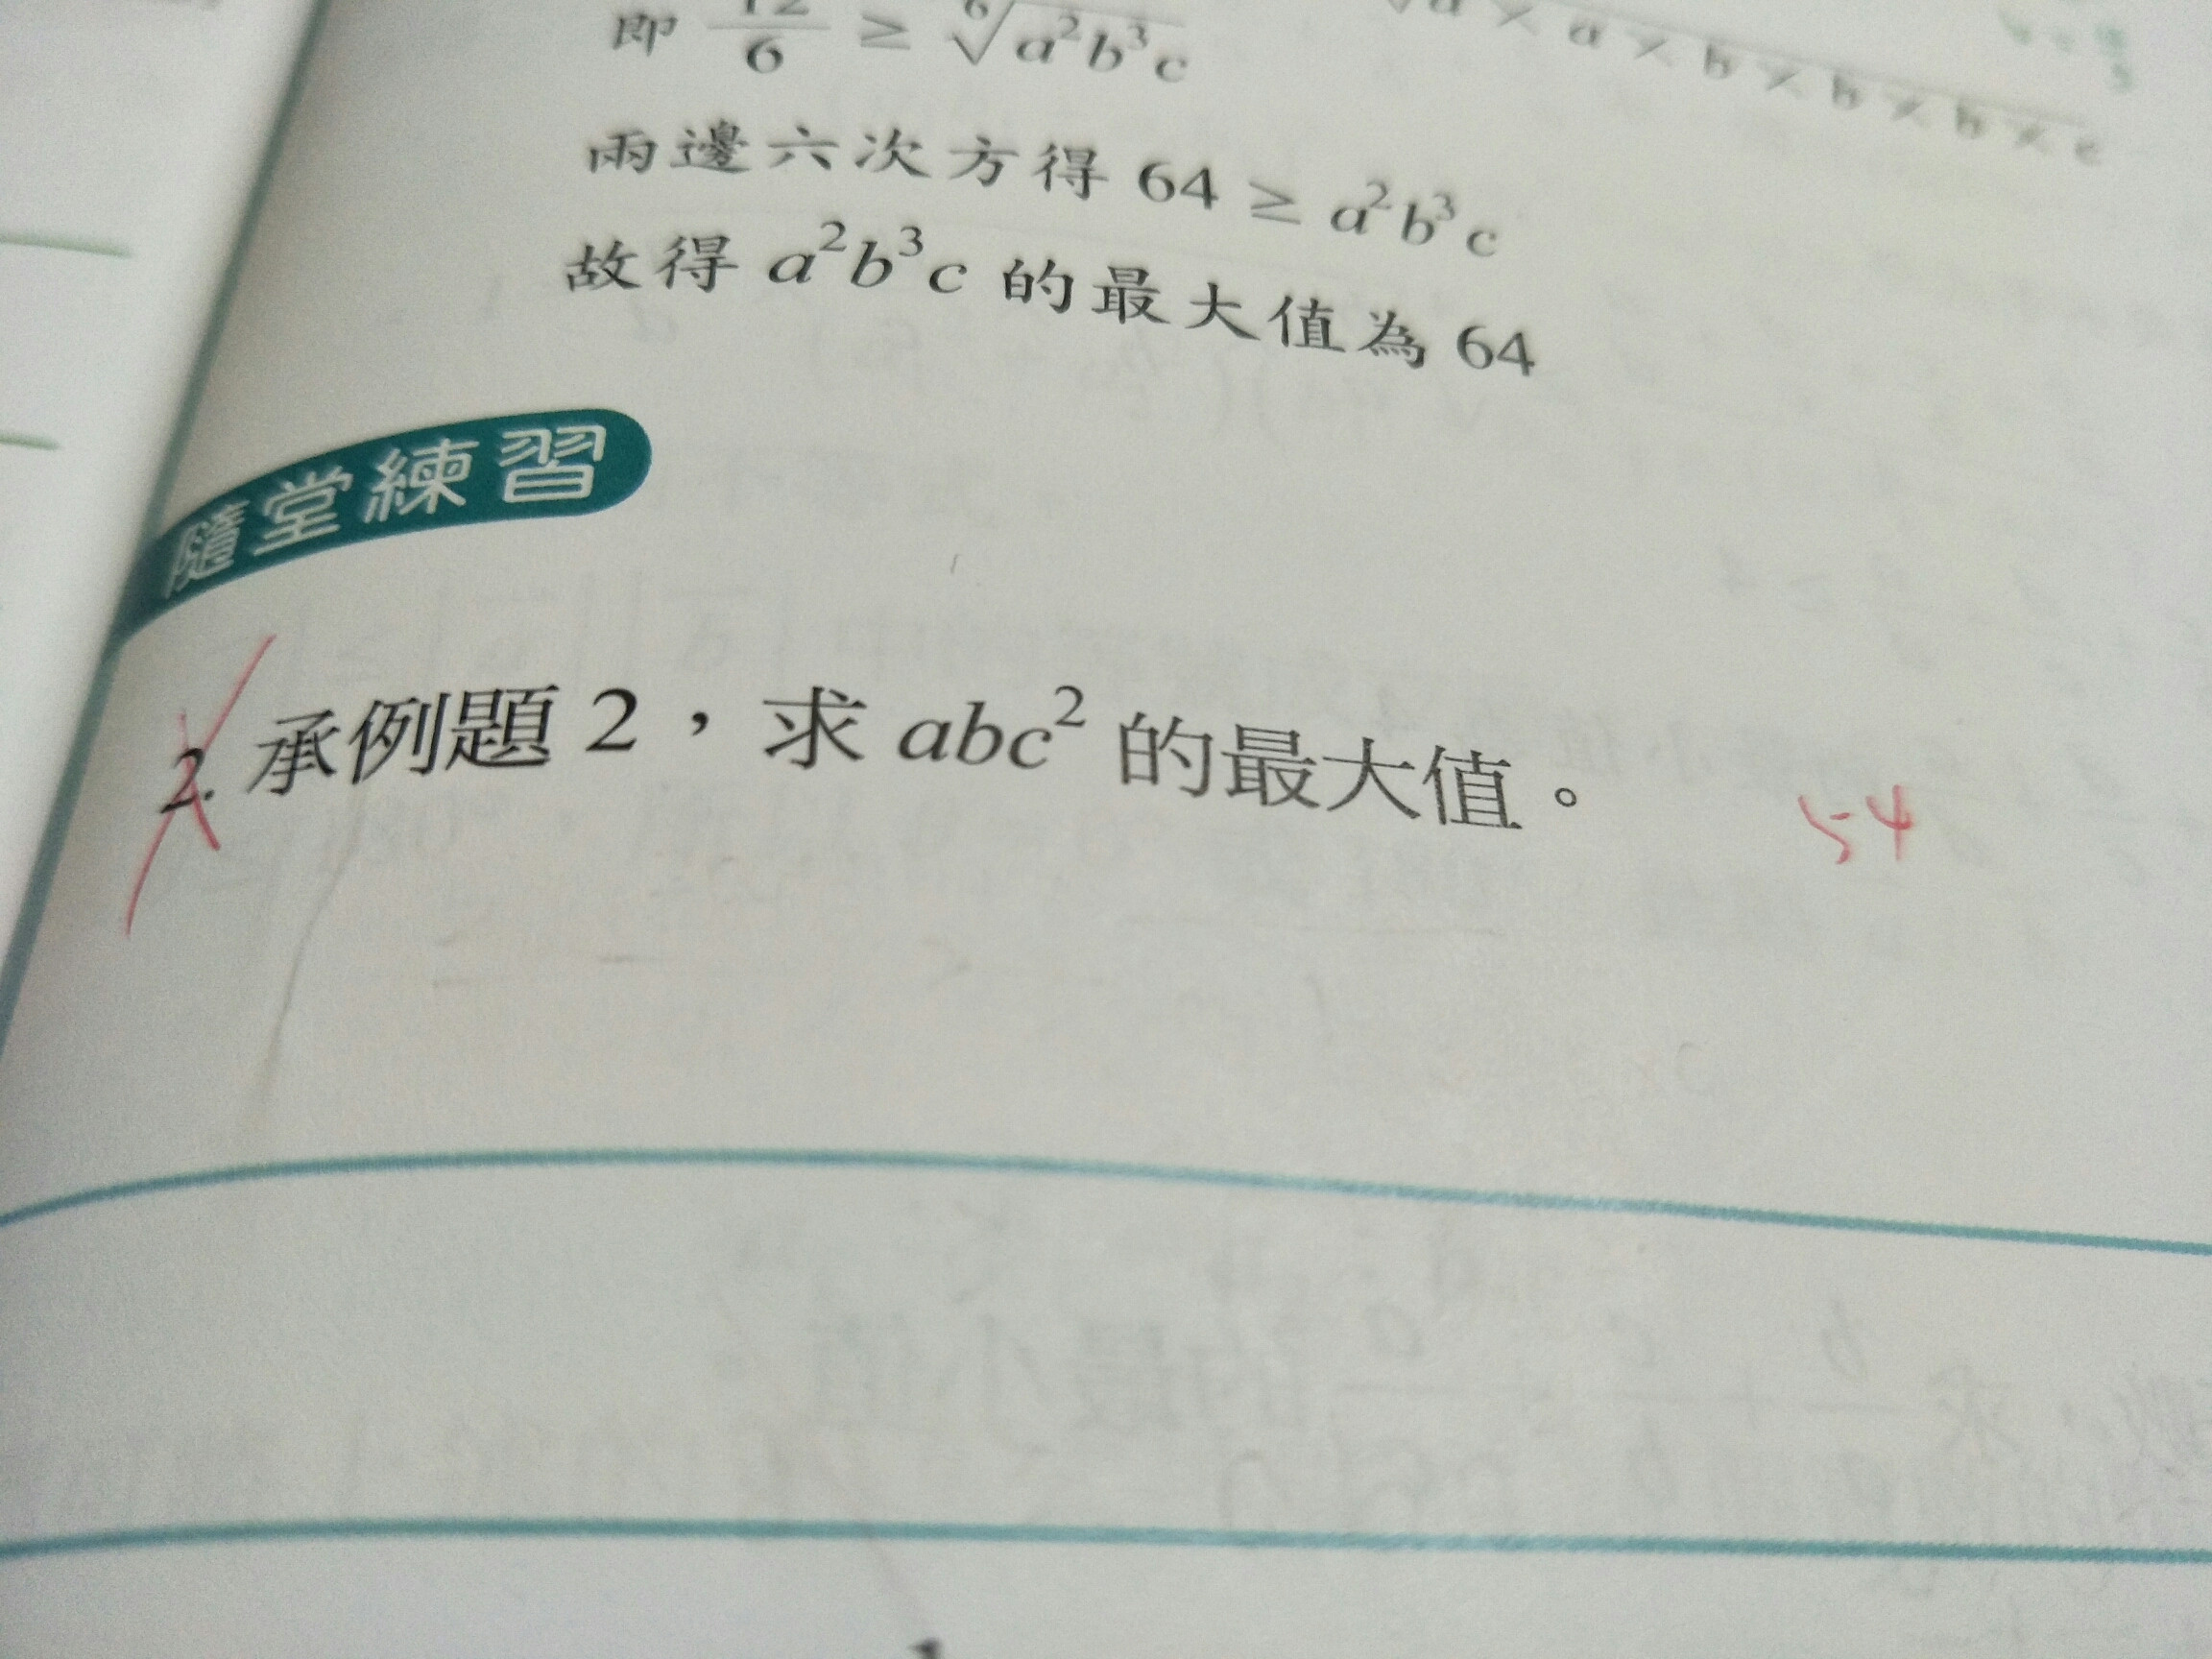 即 12/6 ≥ ⁶√a²b³c
a × a × b × b × b × c
兩邊六次方得 64 ≥ a²b³c
故得 a²b³c 的最大值為 64
隨堂練習
2. 承例題 2，求 abc² 的最大值。
54